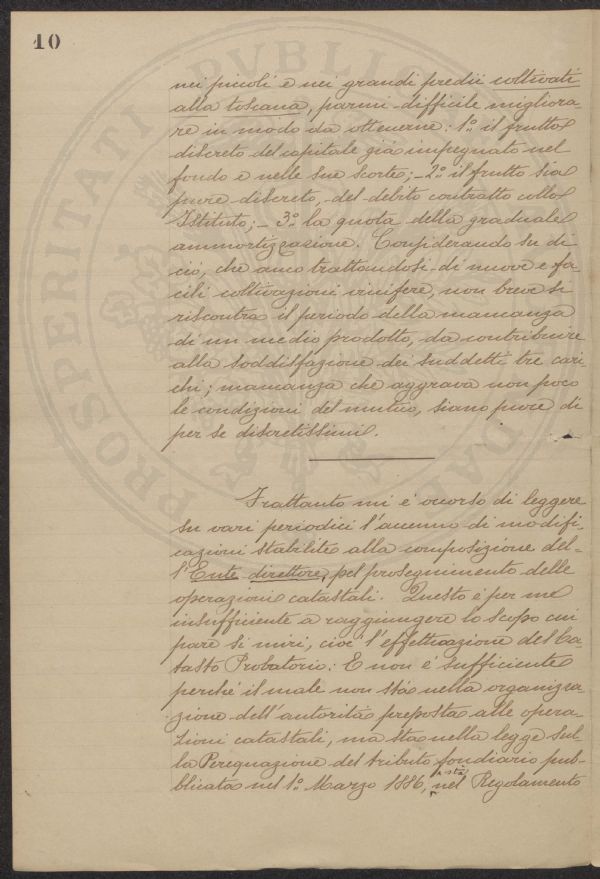 10
nei piccoli e nei grandi predii coltivati
alla toscana, parmi difficile migliora-
re in modo da ottenerne: 1.º il frutto
discreto del capitale già impegnato nel
fondo e nelle sue scorte; - 2.º il frutto sia
pure discreto, del debito contratto collo
Istituto; - 3.º la quota della graduale
ammortizzazione. Considerando su di
ciò, che anco trattandosi di nuove e fa-
cili coltivazioni vinifere, non breve si
riscontra il periodo della mancanza
di un medio prodotto, da contribuire
alla soddisfazione dei suddetti tre cari
chi; mancanza che aggrava non poco
le condizioni del mutuo, siano pure di
per se discretissimi.
Frattanto mi è occorso di leggere
su vari periodici l'accenno di modifi-
cazioni stabilite alla composizione del-
l'Ente direttore, pel proseguimento delle
operazioni catastali. Questo è per me
insufficiente a raggiungere lo scopo cui
pare si miri, cioè l'effettuazione del Ca-
tasto Probatorio: E non è sufficiente
perché il male non stà nella organizza-
zione dell'autorità preposta alle opera-
zioni catastali, ma sta nella legge sul-
la Perequazione del tributo fondiario pub-
blicata nel 1.º Marzo 1886, stà nel Regolamento
PVBLICA
PROSPERITATI